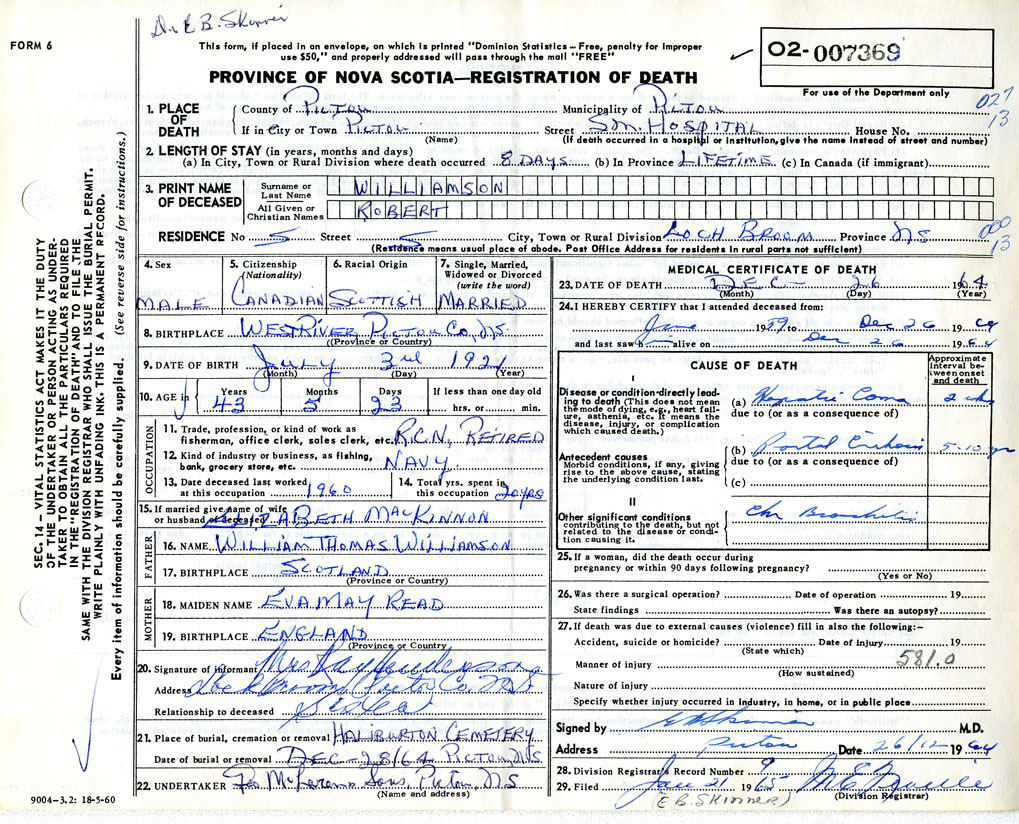 Dr. E B. Skinner
FORM 6
This form, if placed in an envelope, on which is printed "Dominion Statistics – Free, penalty for improper
use $50," and properly addressed will pass through the mail "FREE"
PROVINCE OF NOVA SCOTIA—REGISTRATION OF DEATH
O2-007369
For use of the Department only
027
13
1. PLACE OF DEATH
County of PICTOU Municipality of PICTOU
If in City or Town PICTOU Street S.M. HOSPITAL House No.
(Name) (If death occurred in a hospital or institution, give the name instead of street and number)
2. LENGTH OF STAY (in years, months and days)
(a) In City, Town or Rural Division where death occurred 8 DAYS (b) In Province LIFETIME (c) In Canada (if immigrant)
3. PRINT NAME OF DECEASED
Surname or Last Name WILLIAMSON
All Given or Christian Names ROBERT
RESIDENCE No S Street S City, Town or Rural Division LOCH BROOM Province NS
000
13
(Residence means usual place of abode. Post Office Address for residents in rural parts not sufficient)
4. Sex MALE
5. Citizenship (Nationality) CANADIAN
6. Racial Origin SCOTTISH
7. Single, Married, Widowed or Divorced (write the word) MARRIED
8. BIRTHPLACE WEST RIVER PICTOU CO, N.S.
(Province or Country)
9. DATE OF BIRTH July 3rd 1921
(Month) (Day) (Year)
10. AGE in Years 43 Months 5 Days 23 If less than one day old hrs. or min.
OCCUPATION
11. Trade, profession, or kind of work as
fisherman, office clerk, sales clerk, etc. R.C.N. RETIRED
12. Kind of industry or business, as fishing,
bank, grocery store, etc. NAVY
13. Date deceased last worked
at this occupation 1960
14. Total yrs. spent in
this occupation 20 YRS
15. If married give name of wife
or husband of deceased ELIZABETH MACKINNON
FATHER
16. NAME WILLIAM THOMAS WILLIAMSON
17. BIRTHPLACE SCOTLAND
(Province or Country)
MOTHER
18. MAIDEN NAME EVA MAY READ
19. BIRTHPLACE ENGLAND
(Province or Country)
20. Signature of informant Mrs Ray Henderson
Address Loch Broom, Pictou Co. N.S
Relationship to deceased Sister
21. Place of burial, cremation or removal HALIBURTON CEMETERY
Date of burial or removal DEC - 28/64 PICTOU, N.S
22. UNDERTAKER Sons, Pictou N.S
(Name and address)
9004–3.2: 18-5-60
MEDICAL CERTIFICATE OF DEATH
23. DATE OF DEATH DEC - 26 1964
(Month) (Day) (Year)
24. I HEREBY CERTIFY that I attended deceased from:
June 1959 to Dec 26 1964
and last saw him alive on Dec 26 1964
CAUSE OF DEATH
Approximate interval between onset and death
I
Disease or condition directly leading to death (This does not mean the mode of dying, e.g., heart failure, asthenia, etc. It means the disease, injury, or complication which caused death.)
(a) Hepatic Coma 2 wks
due to (or as a consequence of)
Antecedent causes
Morbid conditions, if any, giving rise to the above cause, stating the underlying condition last.
(b) Portal Cirrhosis 5-10 yr
due to (or as a consequence of)
(c)
II
Other significant conditions
contributing to the death, but not related to the disease or condition causing it.
Chr Bronchitis
25. If a woman, did the death occur during
pregnancy or within 90 days following pregnancy?
(Yes or No)
26. Was there a surgical operation? Date of operation 19
State findings Was there an autopsy?
27. If death was due to external causes (violence) fill in also the following:–
Accident, suicide or homicide? Date of injury 19
(State which)
581.0
Manner of injury
(How sustained)
Nature of injury
Specify whether injury occurred in industry, in home, or in public place
Signed by EBSkinner M.D.
Address Pictou Date 26/12 1964
28. Division Registrar's Record Number 9
29. Filed Jan 21 1965
(E B. SKINNER) (Division Registrar)
SEC. 14 – VITAL STATISTICS ACT MAKES IT THE DUTY
OF THE UNDERTAKER OR PERSON ACTING AS UNDER-
TAKER TO OBTAIN ALL THE PARTICULARS REQUIRED
IN THE "REGISTRATION OF DEATH" AND TO FILE THE
SAME WITH THE DIVISION REGISTRAR WHO SHALL ISSUE THE BURIAL PERMIT.
WRITE PLAINLY WITH UNFADING INK. THIS IS A PERMANENT RECORD.
Every item of information should be carefully supplied. (See reverse side for instructions.)